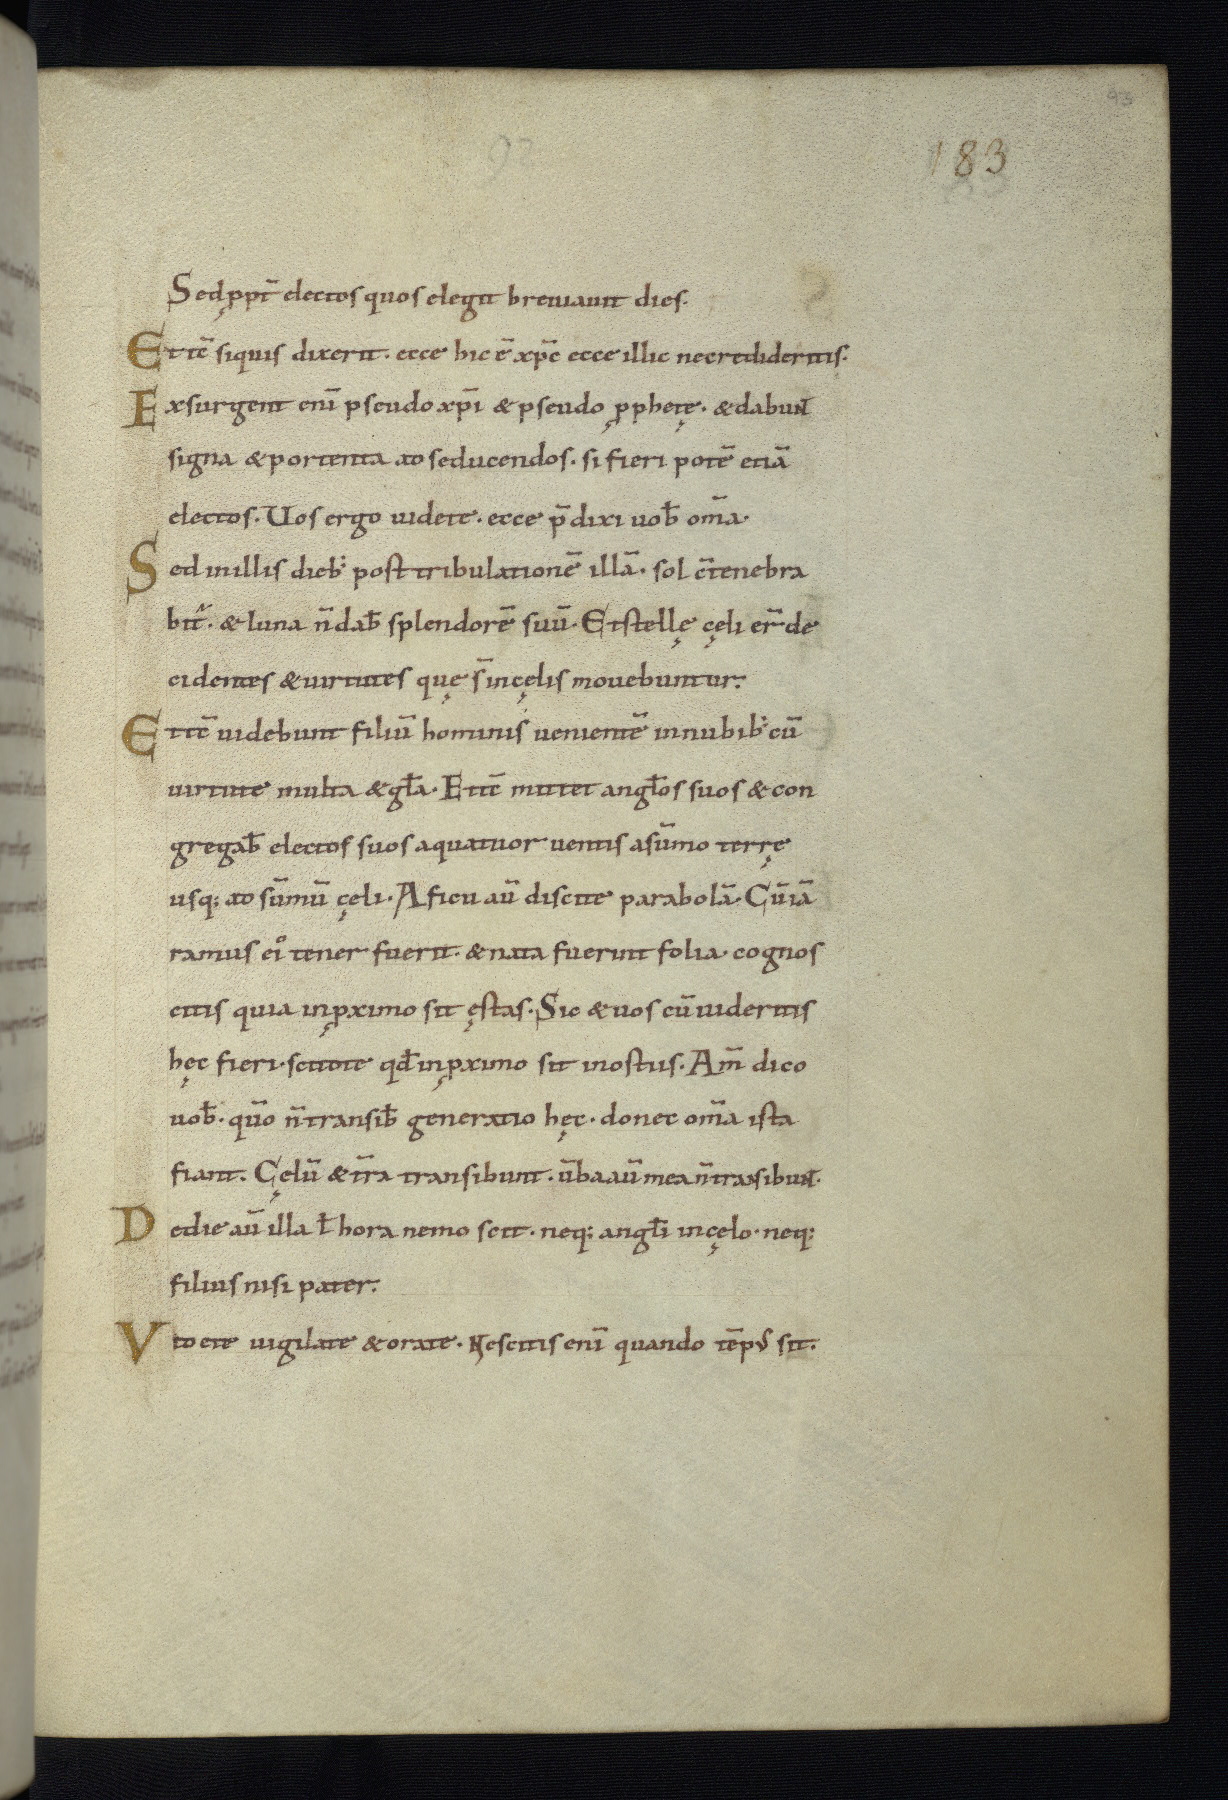 93
183
Sed ꝓpt̄ electos quos elegit breuiauit dies.
Et tc̄ siquis dixerit. ecce hic ē xp̄c ecce illic ne credideritis.
Exsurgent eni̅ pseudo xp̄i & pseudo ꝓphetę. & dabunt
signa & portenta ad seducendos. si fieri potē etiā
electos. Uos ergo uidete. ecce p̄dixi uob̄ om̄a.
Sed in illis dieb; post tribulationē illā. sol c̄tenebra
bit᷑. & luna n̄ dab̄ splendorē suū. Et stellę cęli er̄ de
cidentes & uirtutes quę s̄ in cęlis mouebuntur.
Et tc̄ uidebunt filiū hominis uenientē in nubib; cū
uirtute multa & gl̄a. Et tc̄ mittet angl̄os suos & con
gregab̄ electos suos a quatuor uentis a sūmo terrę
usq; ad sūmū cęli. A ficu aū discite parabolā. Cū iā
ramus eiꝰ tener fuerit. & nata fuerint folia. cognos
citis quia in ꝓximo sit ęstas. Sic & uos cū uideritis
hęc fieri. scitote qd̄ in ꝓximo sit in ostiis. Am̄ dico
uob̄. qm̄o n̄ transib̄ generatio hęc. donec om̄a ista
fiant. Cęlū & t̄ra transibunt. ūba aū mea n̄ transibunt.
De die aū illa ł hora nemo scit. neq; angl̄i in cęlo. neq;
filius nisi pater.
Videte uigilate & orate. Nescitis eni̅ quando tēpꝰ sit.